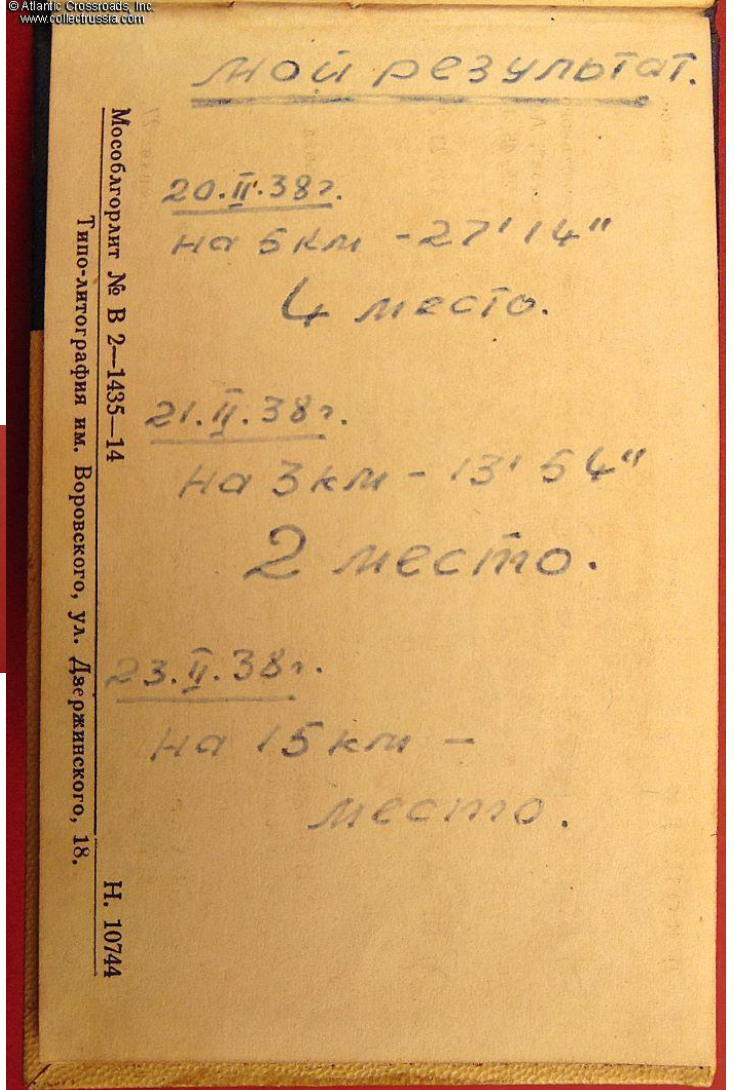 © Atlantic Crossroads, Inc.
www.collectrussia.com
мой результат.
20.II.38г.
на 5 км - 27' 14"
4 место.
21.II.38г.
на 3 км - 13' 54"
2 место.
23.II.38г.
на 15 км -
место.
Мособлгорлит № В 2—1435—14 Н. 10744
Типо-литография им. Воровского, ул. Дзержинского, 18.